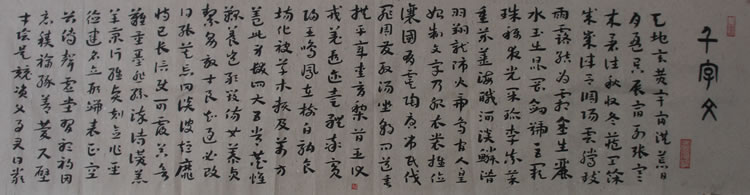 千字文
天地玄黄宇宙洪荒日
月盈昃辰宿列张寒
来暑往秋收冬藏闰余
成岁律吕调阳雲腾致
雨露结为霜金生麗
水玉出崑冈剑號巨阙
珠称夜光果珍李柰菜
重芥薑海咸河淡鳞潜
羽翔龙师火帝鸟官人皇
始制文字乃服衣裳推位
讓国有虞陶唐吊民伐
罪周发殷汤坐朝问道垂
拱平章爱育黎首臣伏
戎羌遐迩壹體率宾
归王鸣凤在樹白驹食
场化被草木赖及万方
盖此身发四大五常恭惟
鞠养岂敢毁伤女慕贞
絜男效才良知过必改
得能莫忘罔谈彼短靡
恃己长信使可覆器欲
難量墨悲丝染诗讚羔
羊景行维贤克念作圣
德建名立形端表正空
谷传聲虚堂習聽祸因
恶積福缘善庆尺璧
寸陰是競资父事君曰嚴